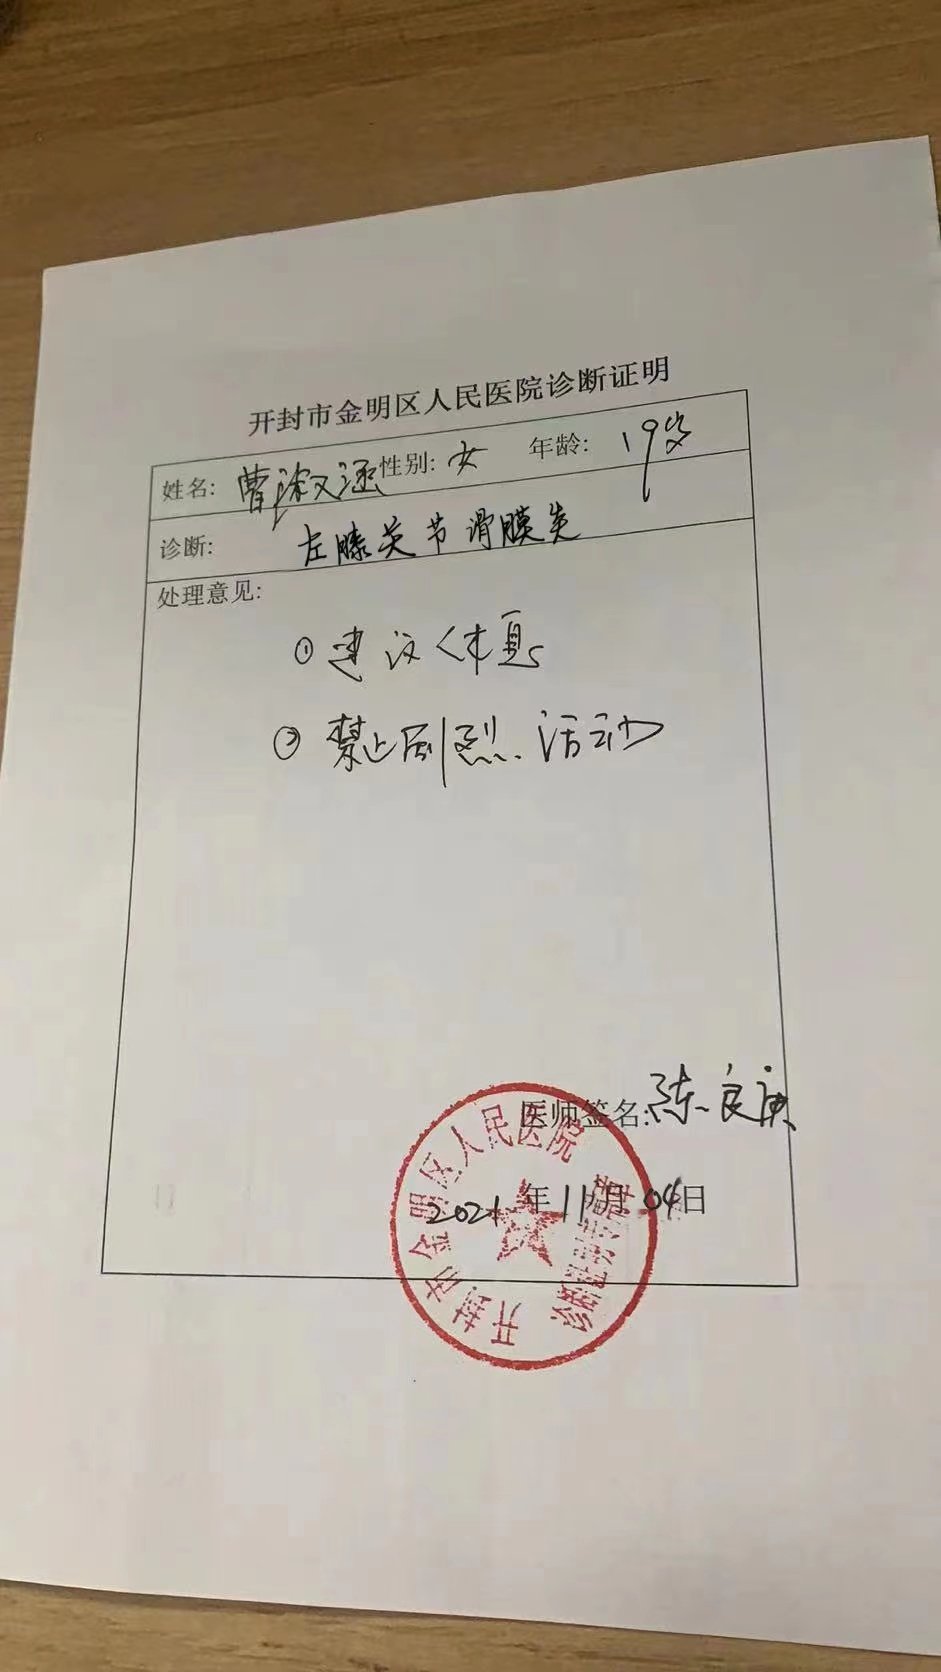 开封市金明区人民医院诊断证明
姓名: 曹淑涵 性别: 女 年龄: 19岁
诊断: 左膝关节滑膜炎
处理意见:
① 建议休息
② 禁止剧烈活动
医师签名: 陈良
2021年11月04日
开封市金明区人民医院
诊断证明专用章